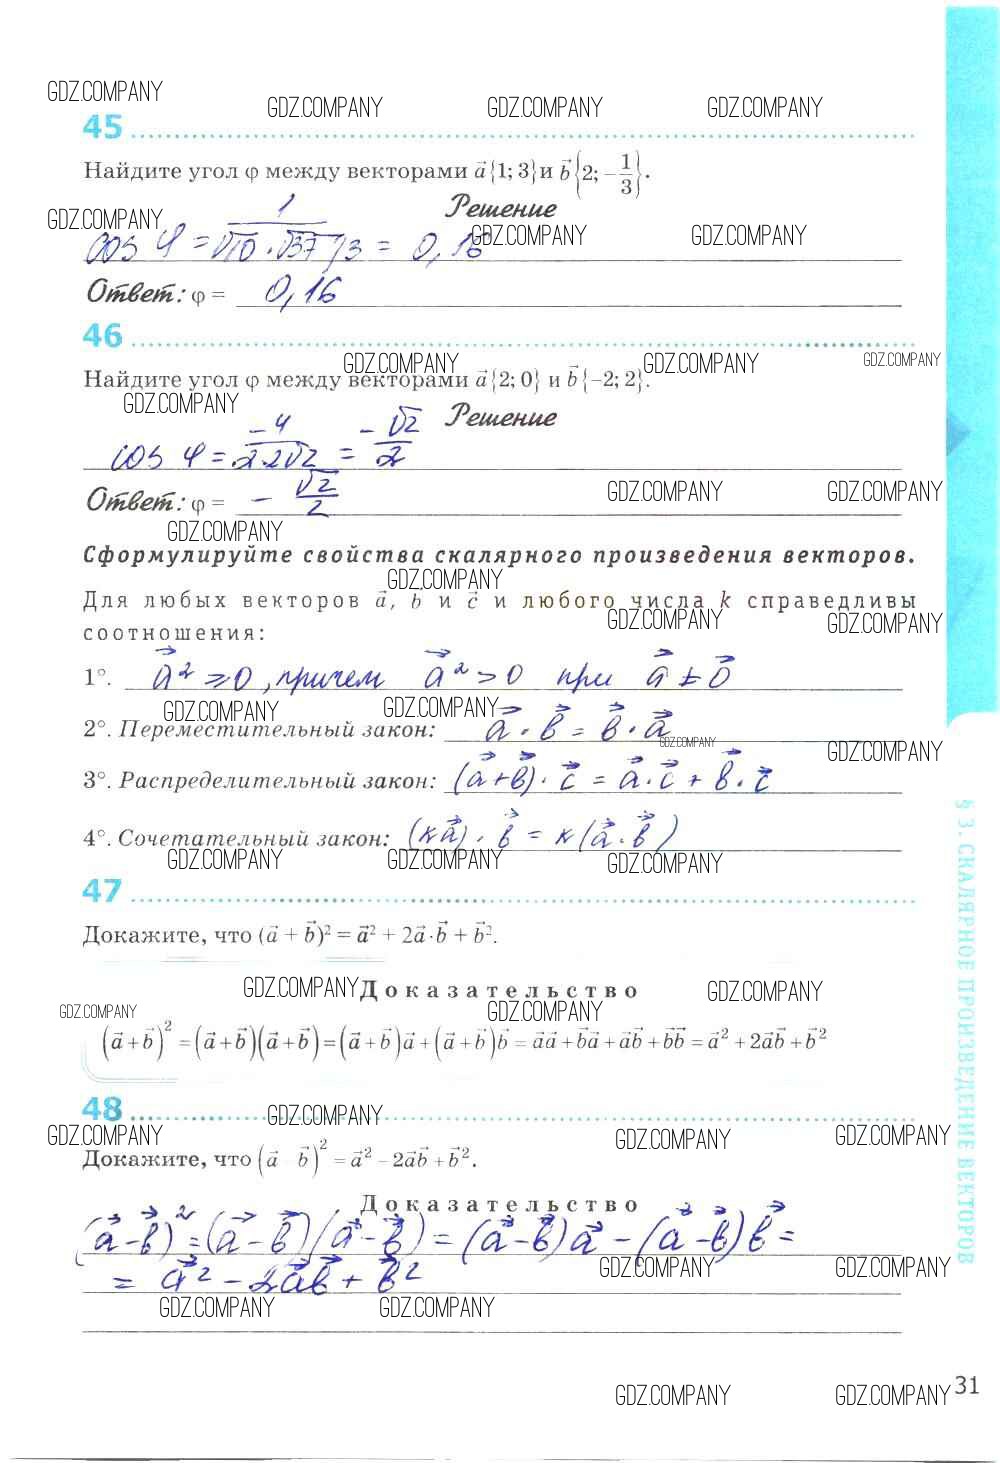 GDZ.COMPANY
GDZ.COMPANY GDZ.COMPANY GDZ.COMPANY
45
Найдите угол φ между векторами a⃗{1; 3} и b⃗{2; −1/3}.
Решение
GDZ.COMPANY GDZ.COMPANY GDZ.COMPANY
cos φ = 1/(√10 · √37/3) = 0,16
Ответ: φ = 0,16
46
GDZ.COMPANY GDZ.COMPANY GDZ.COMPANY
Найдите угол φ между векторами a⃗{2; 0} и b⃗{−2; 2}.
GDZ.COMPANY
Решение
cos φ = −4/(2·2√2) = −√2/2
Ответ: φ = −√2/2
GDZ.COMPANY GDZ.COMPANY
GDZ.COMPANY
Сформулируйте свойства скалярного произведения векторов.
GDZ.COMPANY
Для любых векторов a⃗, b⃗ и c⃗ и любого числа k справедливы
GDZ.COMPANY GDZ.COMPANY
соотношения:
1°. a⃗² ⩾ 0, причем a⃗² > 0 при a⃗ ≠ 0⃗
GDZ.COMPANY GDZ.COMPANY
2°. Переместительный закон: a⃗ · b⃗ = b⃗ · a⃗
GDZ.COMPANY GDZ.COMPANY
3°. Распределительный закон: (a⃗ + b⃗) · c⃗ = a⃗ · c⃗ + b⃗ · c⃗
4°. Сочетательный закон: (k a⃗) · b⃗ = k (a⃗ · b⃗)
GDZ.COMPANY GDZ.COMPANY GDZ.COMPANY
47
Докажите, что (a⃗ + b⃗)² = a⃗² + 2a⃗·b⃗ + b⃗².
GDZ.COMPANY GDZ.COMPANY
Доказательство
GDZ.COMPANY GDZ.COMPANY
(a⃗+b⃗)² = (a⃗+b⃗)(a⃗+b⃗) = (a⃗+b⃗)a⃗ + (a⃗+b⃗)b⃗ = a⃗a⃗ + b⃗a⃗ + a⃗b⃗ + b⃗b⃗ = a⃗² + 2a⃗b⃗ + b⃗²
48
GDZ.COMPANY
GDZ.COMPANY GDZ.COMPANY GDZ.COMPANY
Докажите, что (a⃗ − b⃗)² = a⃗² − 2a⃗b⃗ + b⃗².
Доказательство
(a⃗ − b⃗)² = (a⃗ − b⃗)(a⃗ − b⃗) = (a⃗ − b⃗)a⃗ − (a⃗ − b⃗)b⃗ =
GDZ.COMPANY GDZ.COMPANY
= a⃗² − 2a⃗b⃗ + b⃗²
GDZ.COMPANY GDZ.COMPANY
§ 3. СКАЛЯРНОЕ ПРОИЗВЕДЕНИЕ ВЕКТОРОВ
31
GDZ.COMPANY GDZ.COMPANY